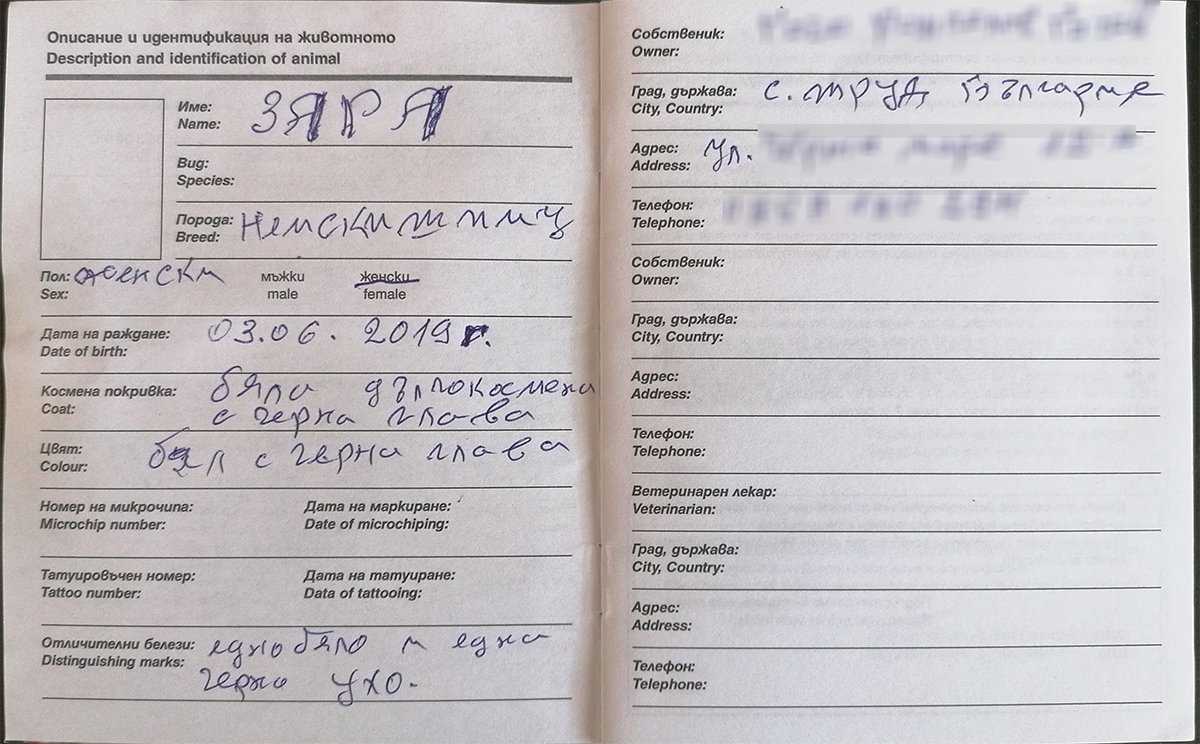 Описание и идентификация на животното
Description and identification of animal
Име: ЗЯРА
Name:
Вид:
Species:
Порода: Немски шпиц
Breed:
Пол: женски мъжки женски
Sex: male female
Дата на раждане: 03.06. 2019 г.
Date of birth:
Космена покривка: бяла дългокосмена
Coat: с черна глава
Цвят: бял с черна глава
Colour:
Номер на микрочипа: Дата на маркиране:
Microchip number: Date of microchiping:
Татуировъчен номер: Дата на татуиране:
Tattoo number: Data of tattooing:
Отличителни белези: едно бяло и една
Distinguishing marks: черна ухо.
Собственик:
Owner:
Град, държава: с. Труд България
City, Country:
Адрес: ул.
Address:
Телефон:
Telephone:
Собственик:
Owner:
Град, държава:
City, Country:
Адрес:
Address:
Телефон:
Telephone:
Ветеринарен лекар:
Veterinarian:
Град, държава:
City, Country:
Адрес:
Address:
Телефон:
Telephone: